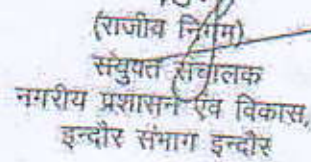 (राजीव निगम)
संयुक्त संचालक
नगरीय प्रशासन एवं विकास,
इन्दौर संभाग इन्दौर